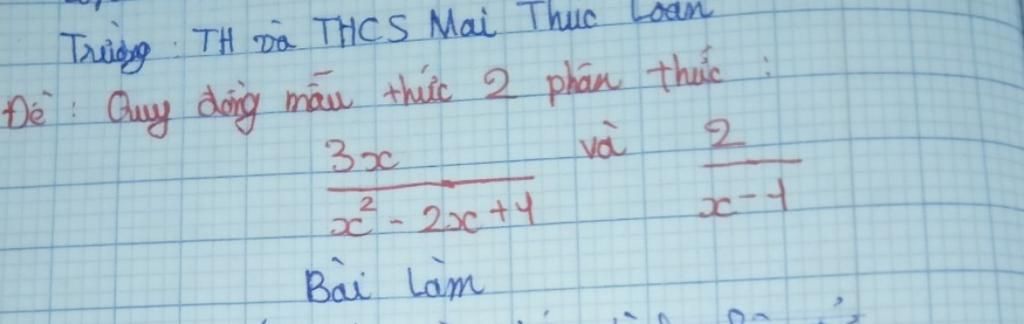 Trường: TH và THCS Mai Thuc Loan
Đề: Quy đồng mẫu thức 2 phân thức:
3x và 2
x² - 2x + 1 x - 1
Bài Làm